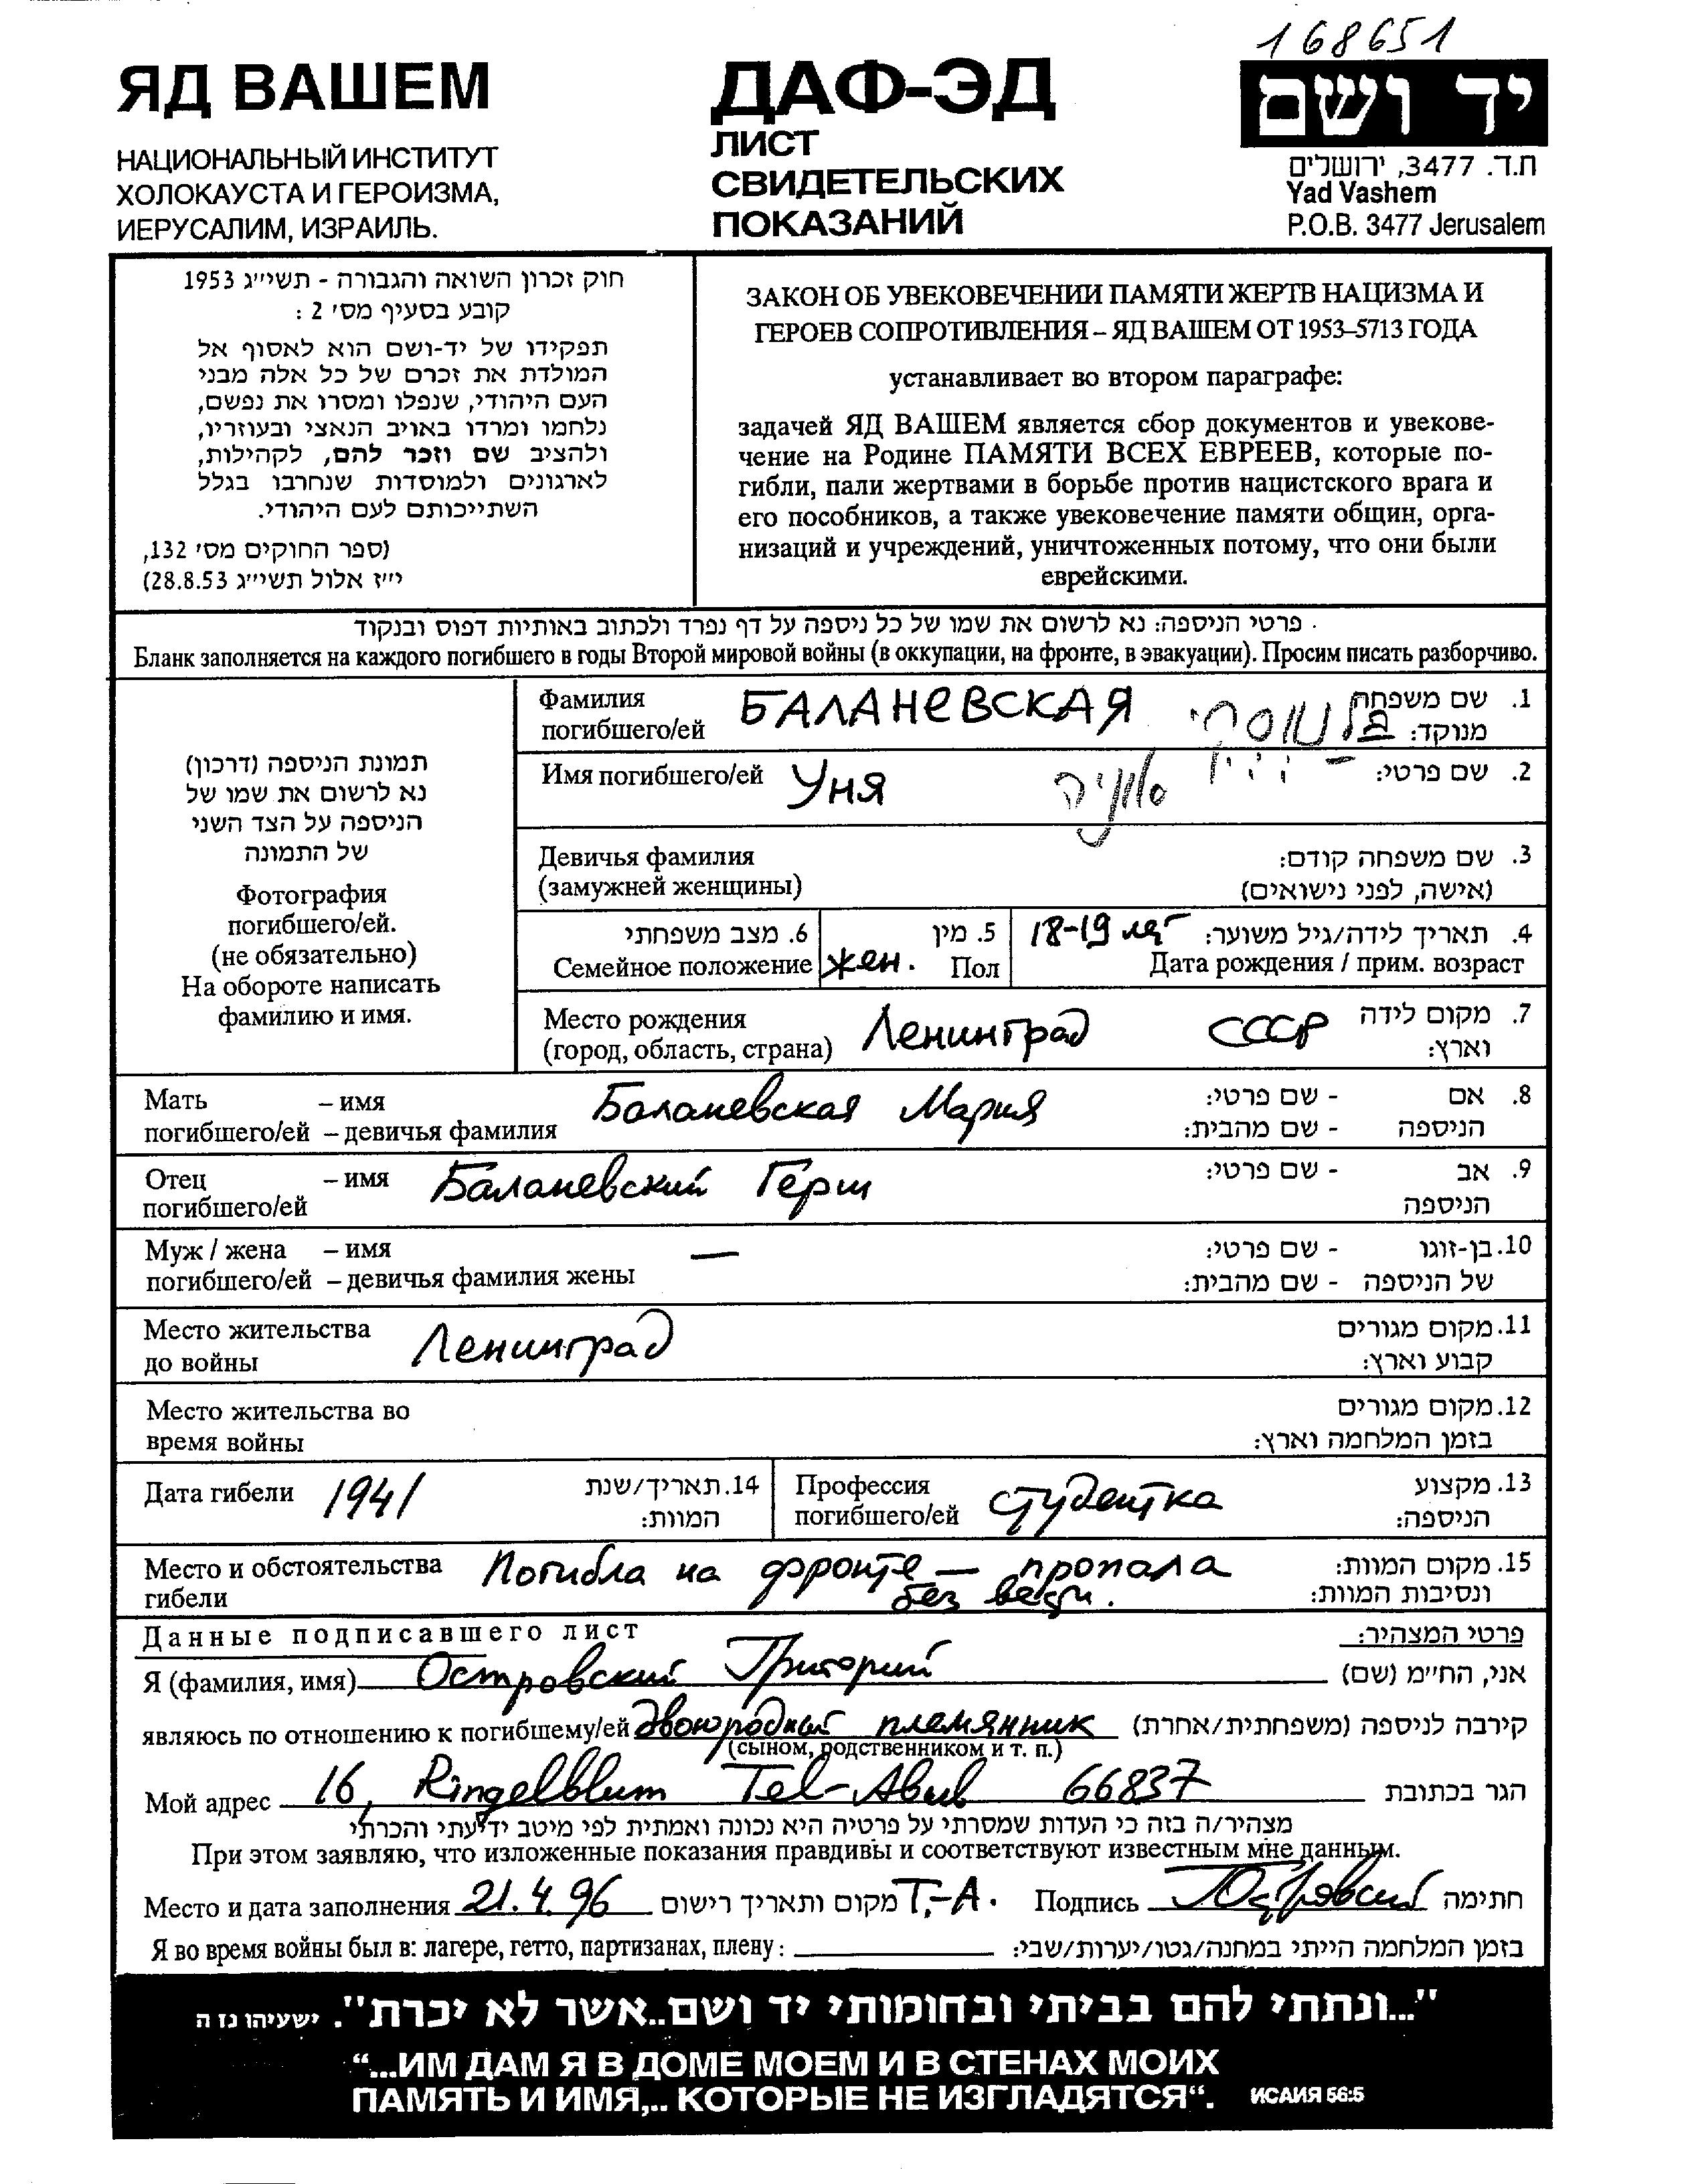 168651
ЯД ВАШЕМ
НАЦИОНАЛЬНЫЙ ИНСТИТУТ
ХОЛОКАУСТА И ГЕРОИЗМА,
ИЕРУСАЛИМ, ИЗРАИЛЬ.
ДАФ-ЭД
ЛИСТ
СВИДЕТЕЛЬСКИХ
ПОКАЗАНИЙ
יד ושם
ת.ד. 3477, ירושלים
Yad Vashem
P.O.B. 3477 Jerusalem
חוק זכרון השואה והגבורה - תשי״ג 1953
קובע בסעיף מס׳ 2 :
תפקידו של יד-ושם הוא לאסוף אל
המולדת את זכרם של כל אלה מבני
העם היהודי, שנפלו ומסרו את נפשם,
נלחמו ומרדו באויב הנאצי ובעוזריו,
ולהציב שם וזכר להם, לקהילות,
לארגונים ולמוסדות שנחרבו בגלל
השתייכותם לעם היהודי.
(ספר החוקים מס׳ 132,
י״ז אלול תשי״ג 28.8.53)
ЗАКОН ОБ УВЕКОВЕЧЕНИИ ПАМЯТИ ЖЕРТВ НАЦИЗМА И
ГЕРОЕВ СОПРОТИВЛЕНИЯ – ЯД ВАШЕМ ОТ 1953–5713 ГОДА
устанавливает во втором параграфе:
задачей ЯД ВАШЕМ является сбор документов и увекове-
чение на Родине ПАМЯТИ ВСЕХ ЕВРЕЕВ, которые по-
гибли, пали жертвами в борьбе против нацистского врага и
его пособников, а также увековечение памяти общин, орга-
низаций и учреждений, уничтоженных потому, что они были
еврейскими.
פרטי הניספה: נא לרשום את שמו של כל ניספה על דף נפרד ולכתוב באותיות דפוס ובנקוד .
Бланк заполняется на каждого погибшего в годы Второй мировой войны (в оккупации, на фронте, в эвакуации). Просим писать разборчиво.
תמונת הניספה (דרכון)
נא לרשום את שמו של
הניספה על הצד השני
של התמונה
Фотография
погибшего/ей.
(не обязательно)
На обороте написать
фамилию и имя.
Фамилия БАЛАНЕВСКАЯ 1. שם משפחה
погибшего/ей מנוקד:
Имя погибшего/ей Уня 2. שם פרטי: אוניה
Девичья фамилия 3. שם משפחה קודם:
(замужней женщины) (אישה, לפני נישואים)
6. מצב משפחתי 5. מין 4. תאריך לידה/גיל משוער: 18-19 лет
Семейное положение жен. Пол Дата рождения / прим. возраст
Место рождения Ленинград СССР 7. מקום לידה
(город, область, страна) וארץ:
Мать – имя Баланевская Мария 8. אם - שם פרטי:
погибшего/ей – девичья фамилия הניספה - שם מהבית:
Отец – имя Баланевский Герш 9. אב - שם פרטי:
погибшего/ей הניספה
Муж / жена – имя — 10. בן-זוגו - שם פרטי:
погибшего/ей – девичья фамилия жены של הניספה - שם מהבית:
Место жительства Ленинград 11. מקום מגורים
до войны קבוע וארץ:
Место жительства во 12. מקום מגורים
время войны בזמן המלחמה וארץ:
Дата гибели 1941 14. תאריך/שנת
המוות:
Профессия студентка 13. מקצוע
погибшего/ей הניספה:
Место и обстоятельства Погибла на фронте — пропала 15. מקום המוות:
гибели без вести. ונסיבות המוות:
Данные подписавшего лист פרטי המצהיר:
Я (фамилия, имя) Островский Григорий אני, הח״מ (שם)
являюсь по отношению к погибшему/ей двоюродный племянник קירבה לניספה (משפחתית/אחרת)
(сыном, родственником и т. п.)
Мой адрес 16, Ringelblum Tel-Abub 66837 הגר בכתובת
מצהיר/ה בזה כי העדות שמסרתי על פרטיה היא נכונה ואמתית לפי מיטב ידיעתי והכרתי
При этом заявляю, что изложенные показания правдивы и соответствуют известным мне данным.
Место и дата заполнения 21.4.96 מקום ותאריך רישום T.-A. Подпись חתימה
Я во время войны был в: лагере, гетто, партизанах, плену : בזמן המלחמה הייתי במחנה/גטו/יערות/שבי:
"...ונתתי להם בביתי ובחומותי יד ושם..אשר לא יכרת". ישעיהו נז ה
“...ИМ ДАМ Я В ДОМЕ МОЕМ И В СТЕНАХ МОИХ
ПАМЯТЬ И ИМЯ,.. КОТОРЫЕ НЕ ИЗГЛАДЯТСЯ“. ИСАИЯ 56:5